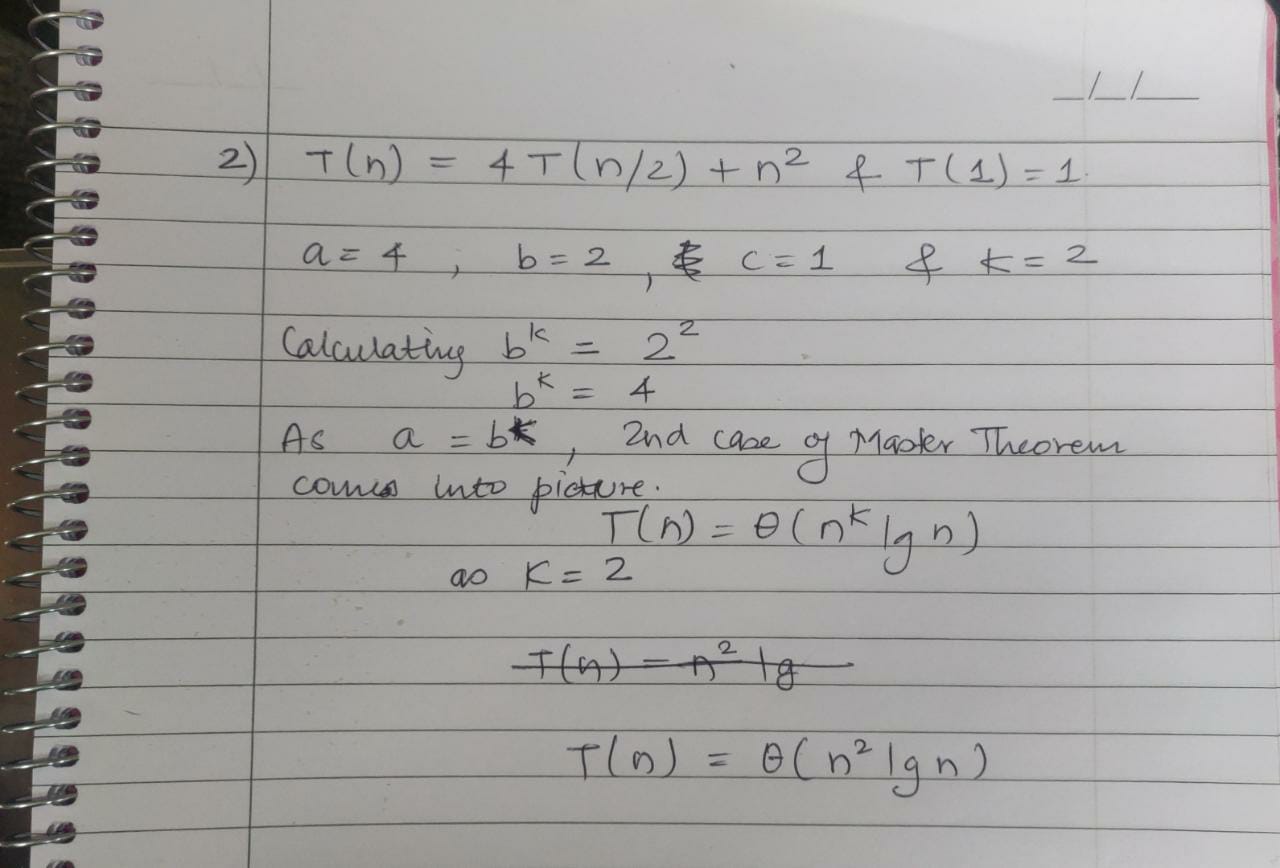 _/_/__
2) T(n) = 4T(n/2) + n² & T(1) = 1.
a = 4 , b = 2 , c = 1 & k = 2
Calculating bᵏ = 2²
bᵏ = 4
As a = bᵏ , 2nd case of Master Theorem
comes into picture.
T(n) = θ(nᵏ lg n)
as K = 2
T(n) = n² lg
T(n) = θ(n² lg n)